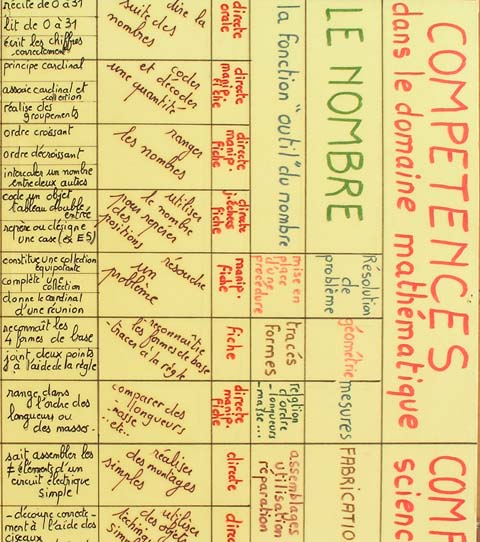 COMPETENCES
dans le domaine mathématique
LE NOMBRE
la fonction "outil" du nombre
directe
orale
dire la
suite des
nombres
récite de 0 à 31
lit de 0 à 31
écrit les chiffres
correctement
directe
manip.
fiche
coder
et décoder
une quantité
principe cardinal
associe cardinal et
collection
réalise des
groupements
directe
manip.
fiche
ranger
les nombres
ordre croissant
ordre décroissant
intercaler un nombre
entre deux autres
directe
fiche
utiliser
le nombre
pour repérer
des
positions
code un objet
tableau double
entrée
repère ou désigne
une case (ex E5)
Résolution
de
problème
mise en
place
d'une
procédure
manip.
fiche
résoudre
un
problème
constitue une collection
équipotente
complète une
collection
donne le cardinal
d'une réunion
géométrie
tracés
formes
fiche
-reconnaître
les formes de base
-tracer à la règle
reconnaît les
4 formes de base
joint deux points
à l'aide de la règle
mesures
relation
d'ordre
-longueurs
-masse...
directe
manip.
fiche
comparer des
-longueurs
-masse
-etc..
range dans
l'ordre des
longueurs ou
des masses.
COMP
scienc
FABRICATIO
assemblages
utilisation
réparation
directe
réaliser
des montages
simples
sait assembler les
≠ éléments d'un
circuit électrique
simple
direc
utiliser
des objets
techniq
simp
-découpe correcte-
-ment à l'aide des
ciseaux